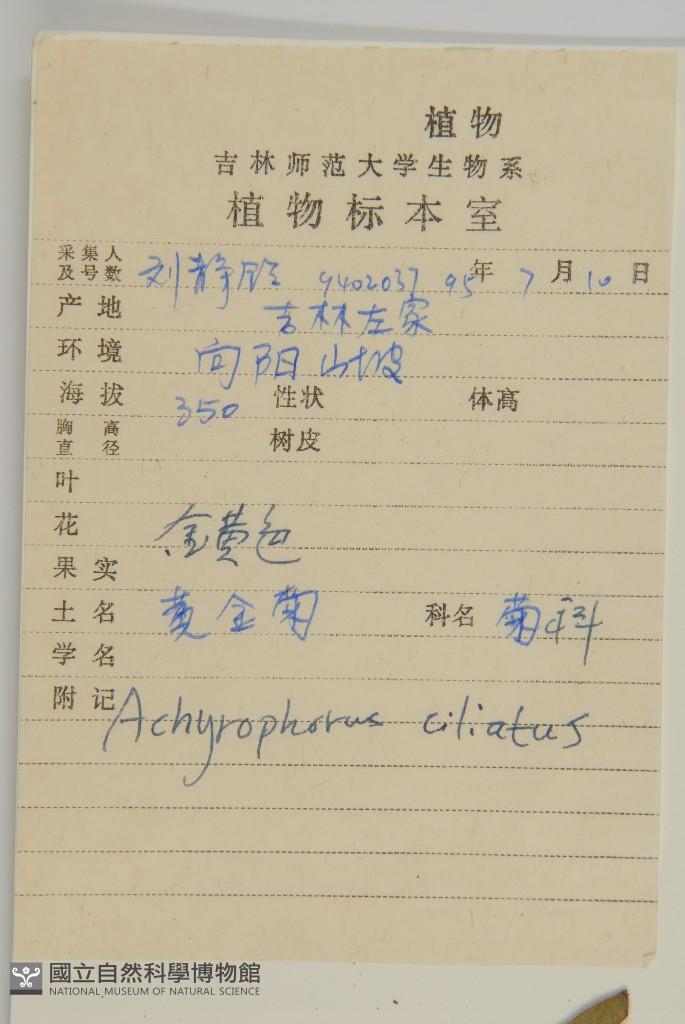 植物
吉林师范大学生物系
植物标本室
采集人及号数 刘静玲 9402037 95年7月10日
产地 吉林左家
环境 向阳山坡
海拔 350 性状 体高
胸高直径 树皮
叶
花 金黄色
果实
土名 黄金菊 科名 菊科
学名
附记 Achyrophorus ciliatus
國立自然科學博物館
NATIONAL MUSEUM OF NATURAL SCIENCE